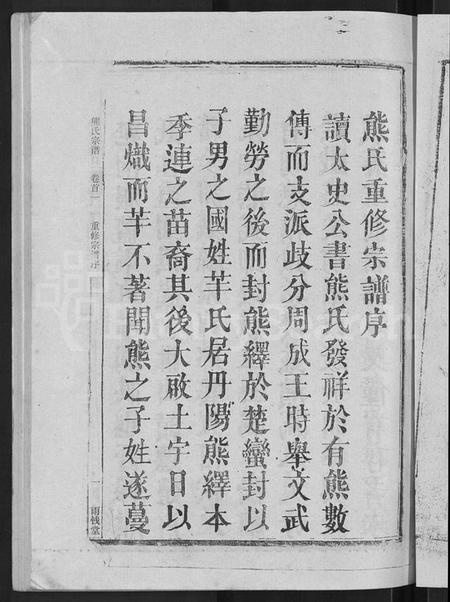 熊氏重修宗譜序
讀太史公書熊氏發祥於有熊數
傳而支派歧分周成王時舉文武
勤勞之後而封熊繹於楚蠻封以
子男之國姓芈氏居丹陽熊繹本
季連之苗裔其後大啟土宇日以
昌熾而芈不著聞熊之子姓遂蔓
熊氏宗谱 卷首一 重修宗谱序 一 雨钱堂